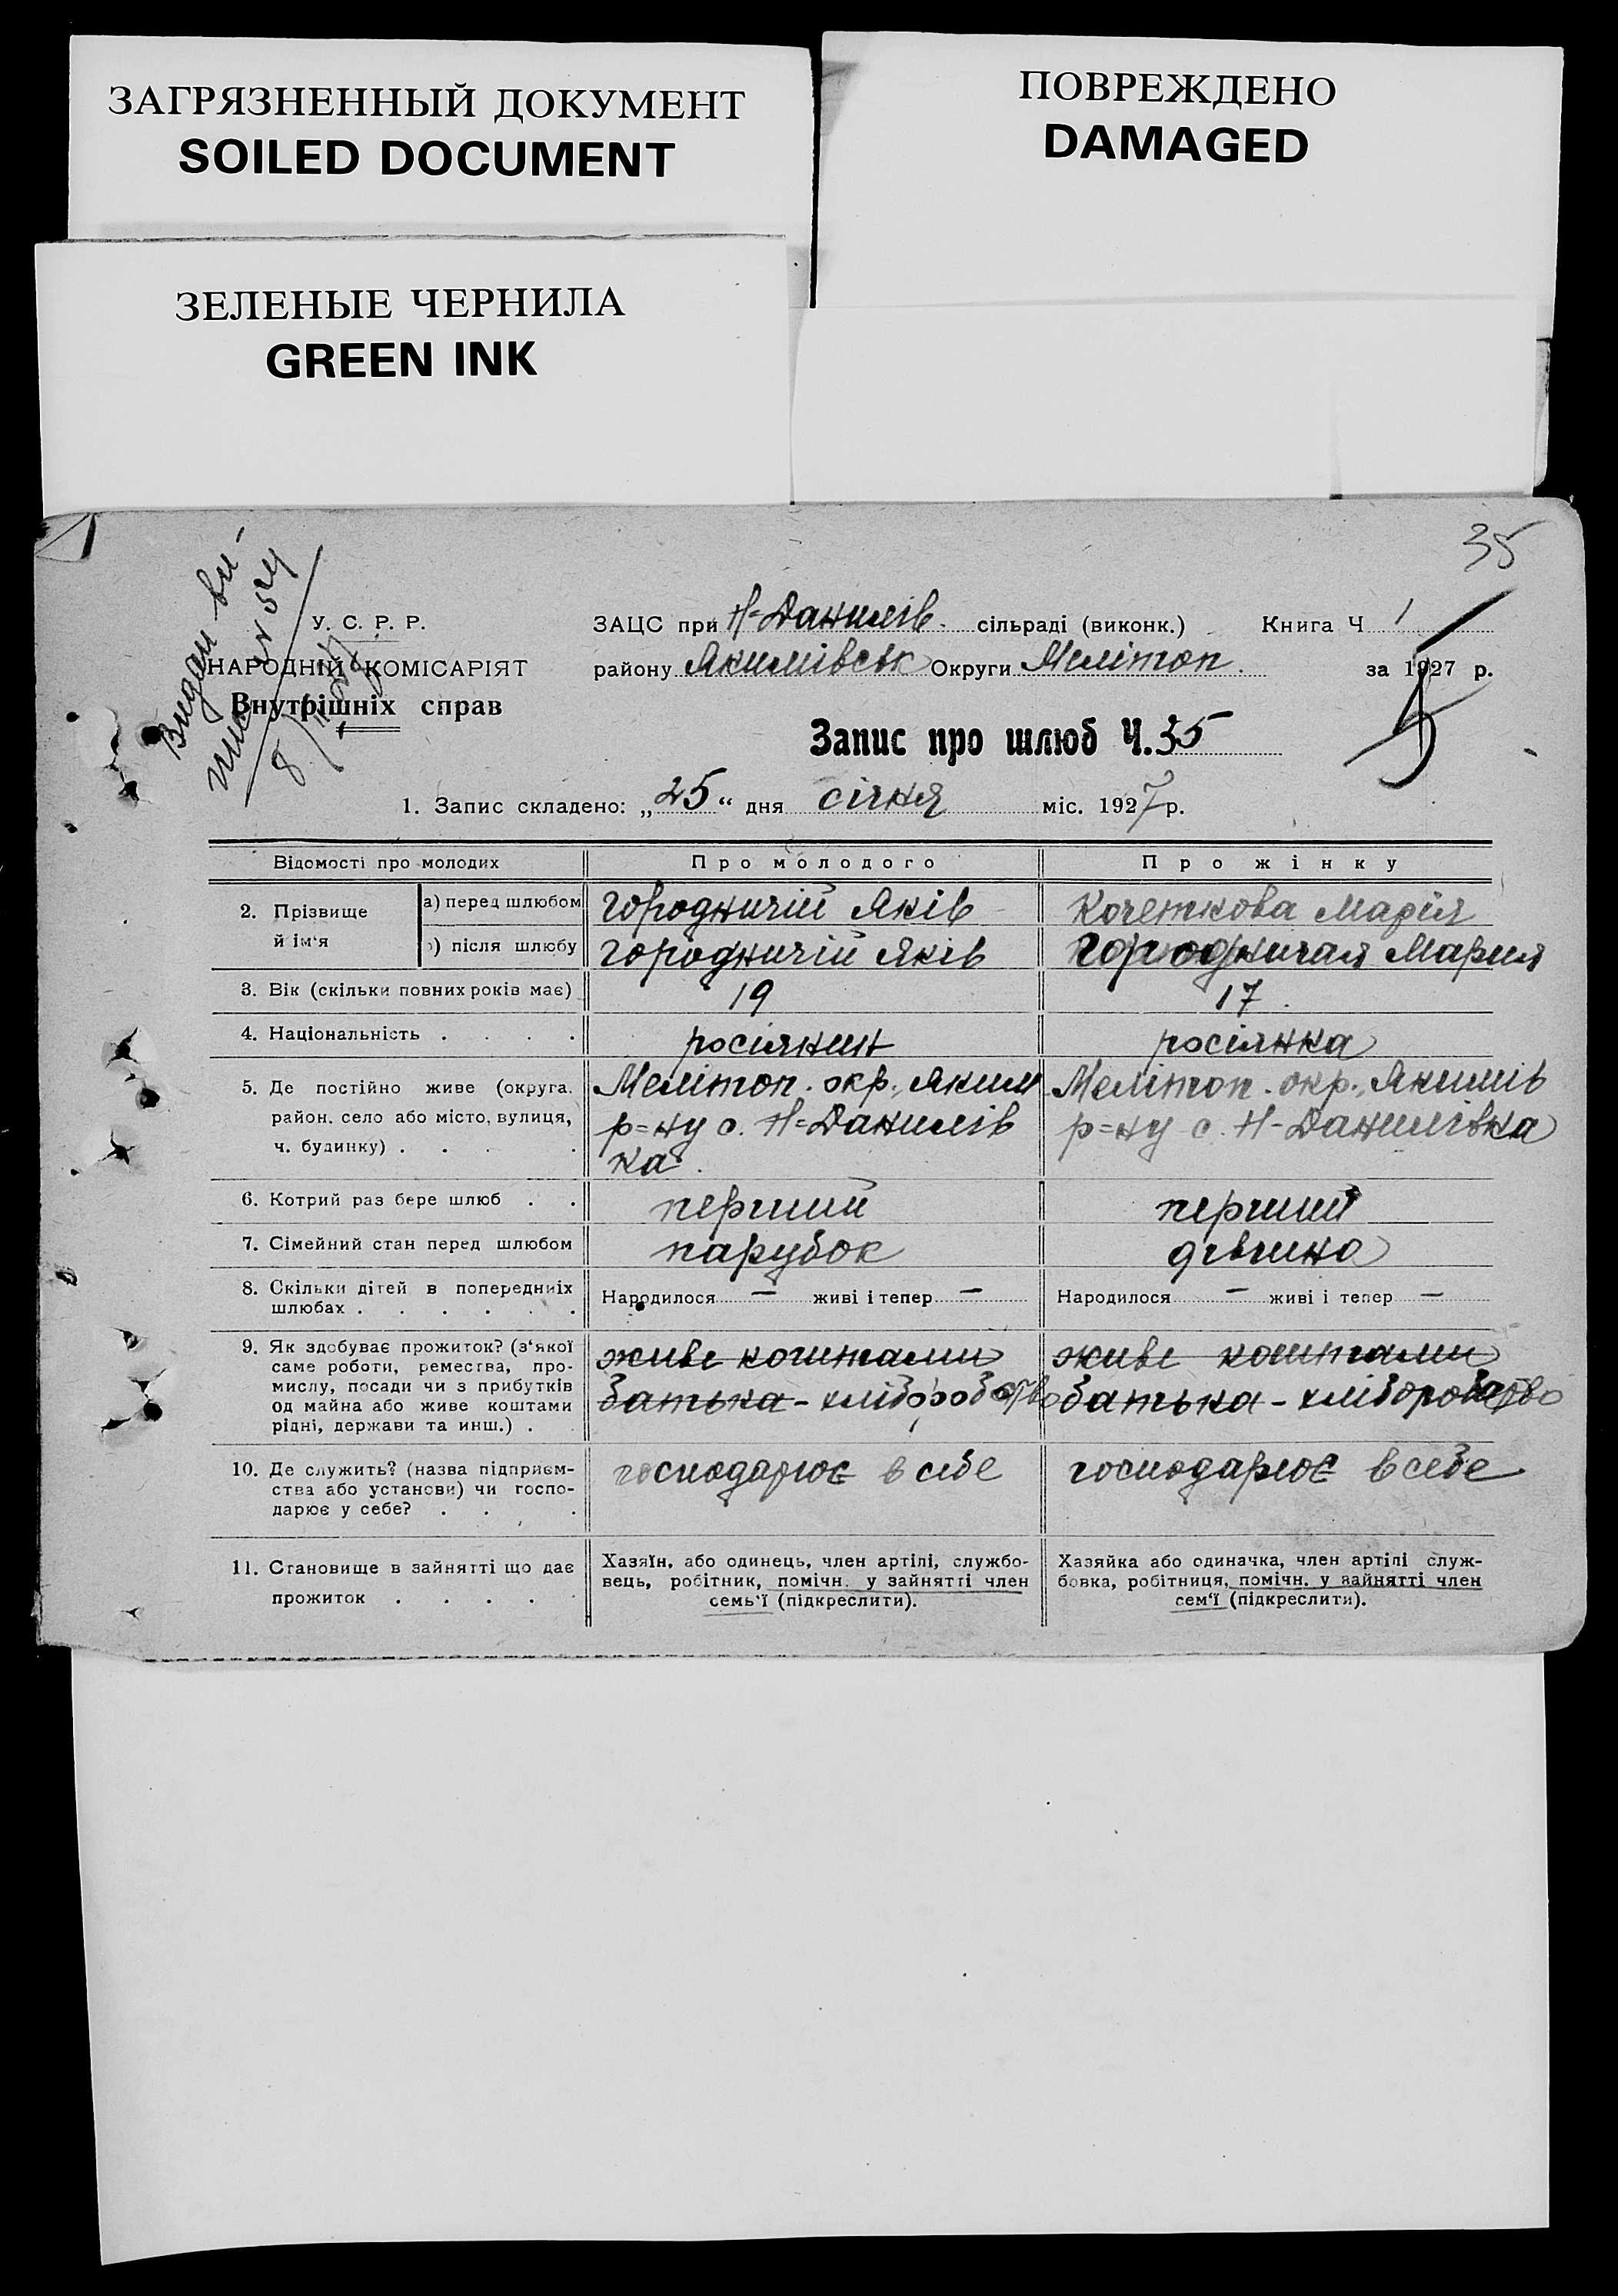 ЗАГРЯЗНЕННЫЙ ДОКУМЕНТ
SOILED DOCUMENT
ПОВРЕЖДЕНО
DAMAGED
ЗЕЛЕНЫЕ ЧЕРНИЛА
GREEN INK
35
Видан ви-
У. С. Р. Р.
НАРОДНІЙ КОМІСАРІЯТ
Внутрішніх справ
ЗАЦС при Н=Данилів. сільраді (виконк.) Книга Ч 1
району Якимівськ Округи Мелітоп. за 1927 р.
5
Запис про шлюб Ч. 35
1. Запис складено: „25“ дня січня міс. 1927 р.
Відомості про молодих Про молодого Про жінку
2. Прізвище й ім‘я а) перед шлюбом Городничій Яків Кочеткова Марія
) після шлюбу Городничій Яків Городничая Мария
3. Вік (скільки повних років має) 19 17
4. Національність . . . . росіянин росіянка
5. Де постійно живе (округа, Мелітоп. окр., Яким Мелітоп. окр., Якимів
район, село або місто, вулиця, р=ну с. Н=Данилів р=ну с. Н-Данилівка
ч. будинку) . . . . ка.
6. Котрий раз бере шлюб . . перший перший
7. Сімейний стан перед шлюбом парубок дівчина
8. Скільки дітей в попередніх
шлюбах . . . . . . Народилося — живі і тепер — Народилося — живі і тепер —
9. Як здобуває прожиток? (з‘якої живе коштами живе коштами
саме роботи, ремества, про-
мислу, посади чи з прибутків батька - хліборобство батька - хліборобство
од майна або живе коштами
рідні, держави та инш.) .
10. Де служить? (назва підприєм- господарює в себе господарює в себе
ства або установи) чи госпо-
дарює у себе? . . .
11. Становище в зайнятті що дає
прожиток . . . .
Хазяїн, або одинець, член артілі, службо-
вець, робітник, помічн. у зайнятті член
семь‘ї (підкреслити).
Хазяйка або одиначка, член артілі служ-
бовка, робітниця, помічн. у зайнятті член
сем‘ї (підкреслити).